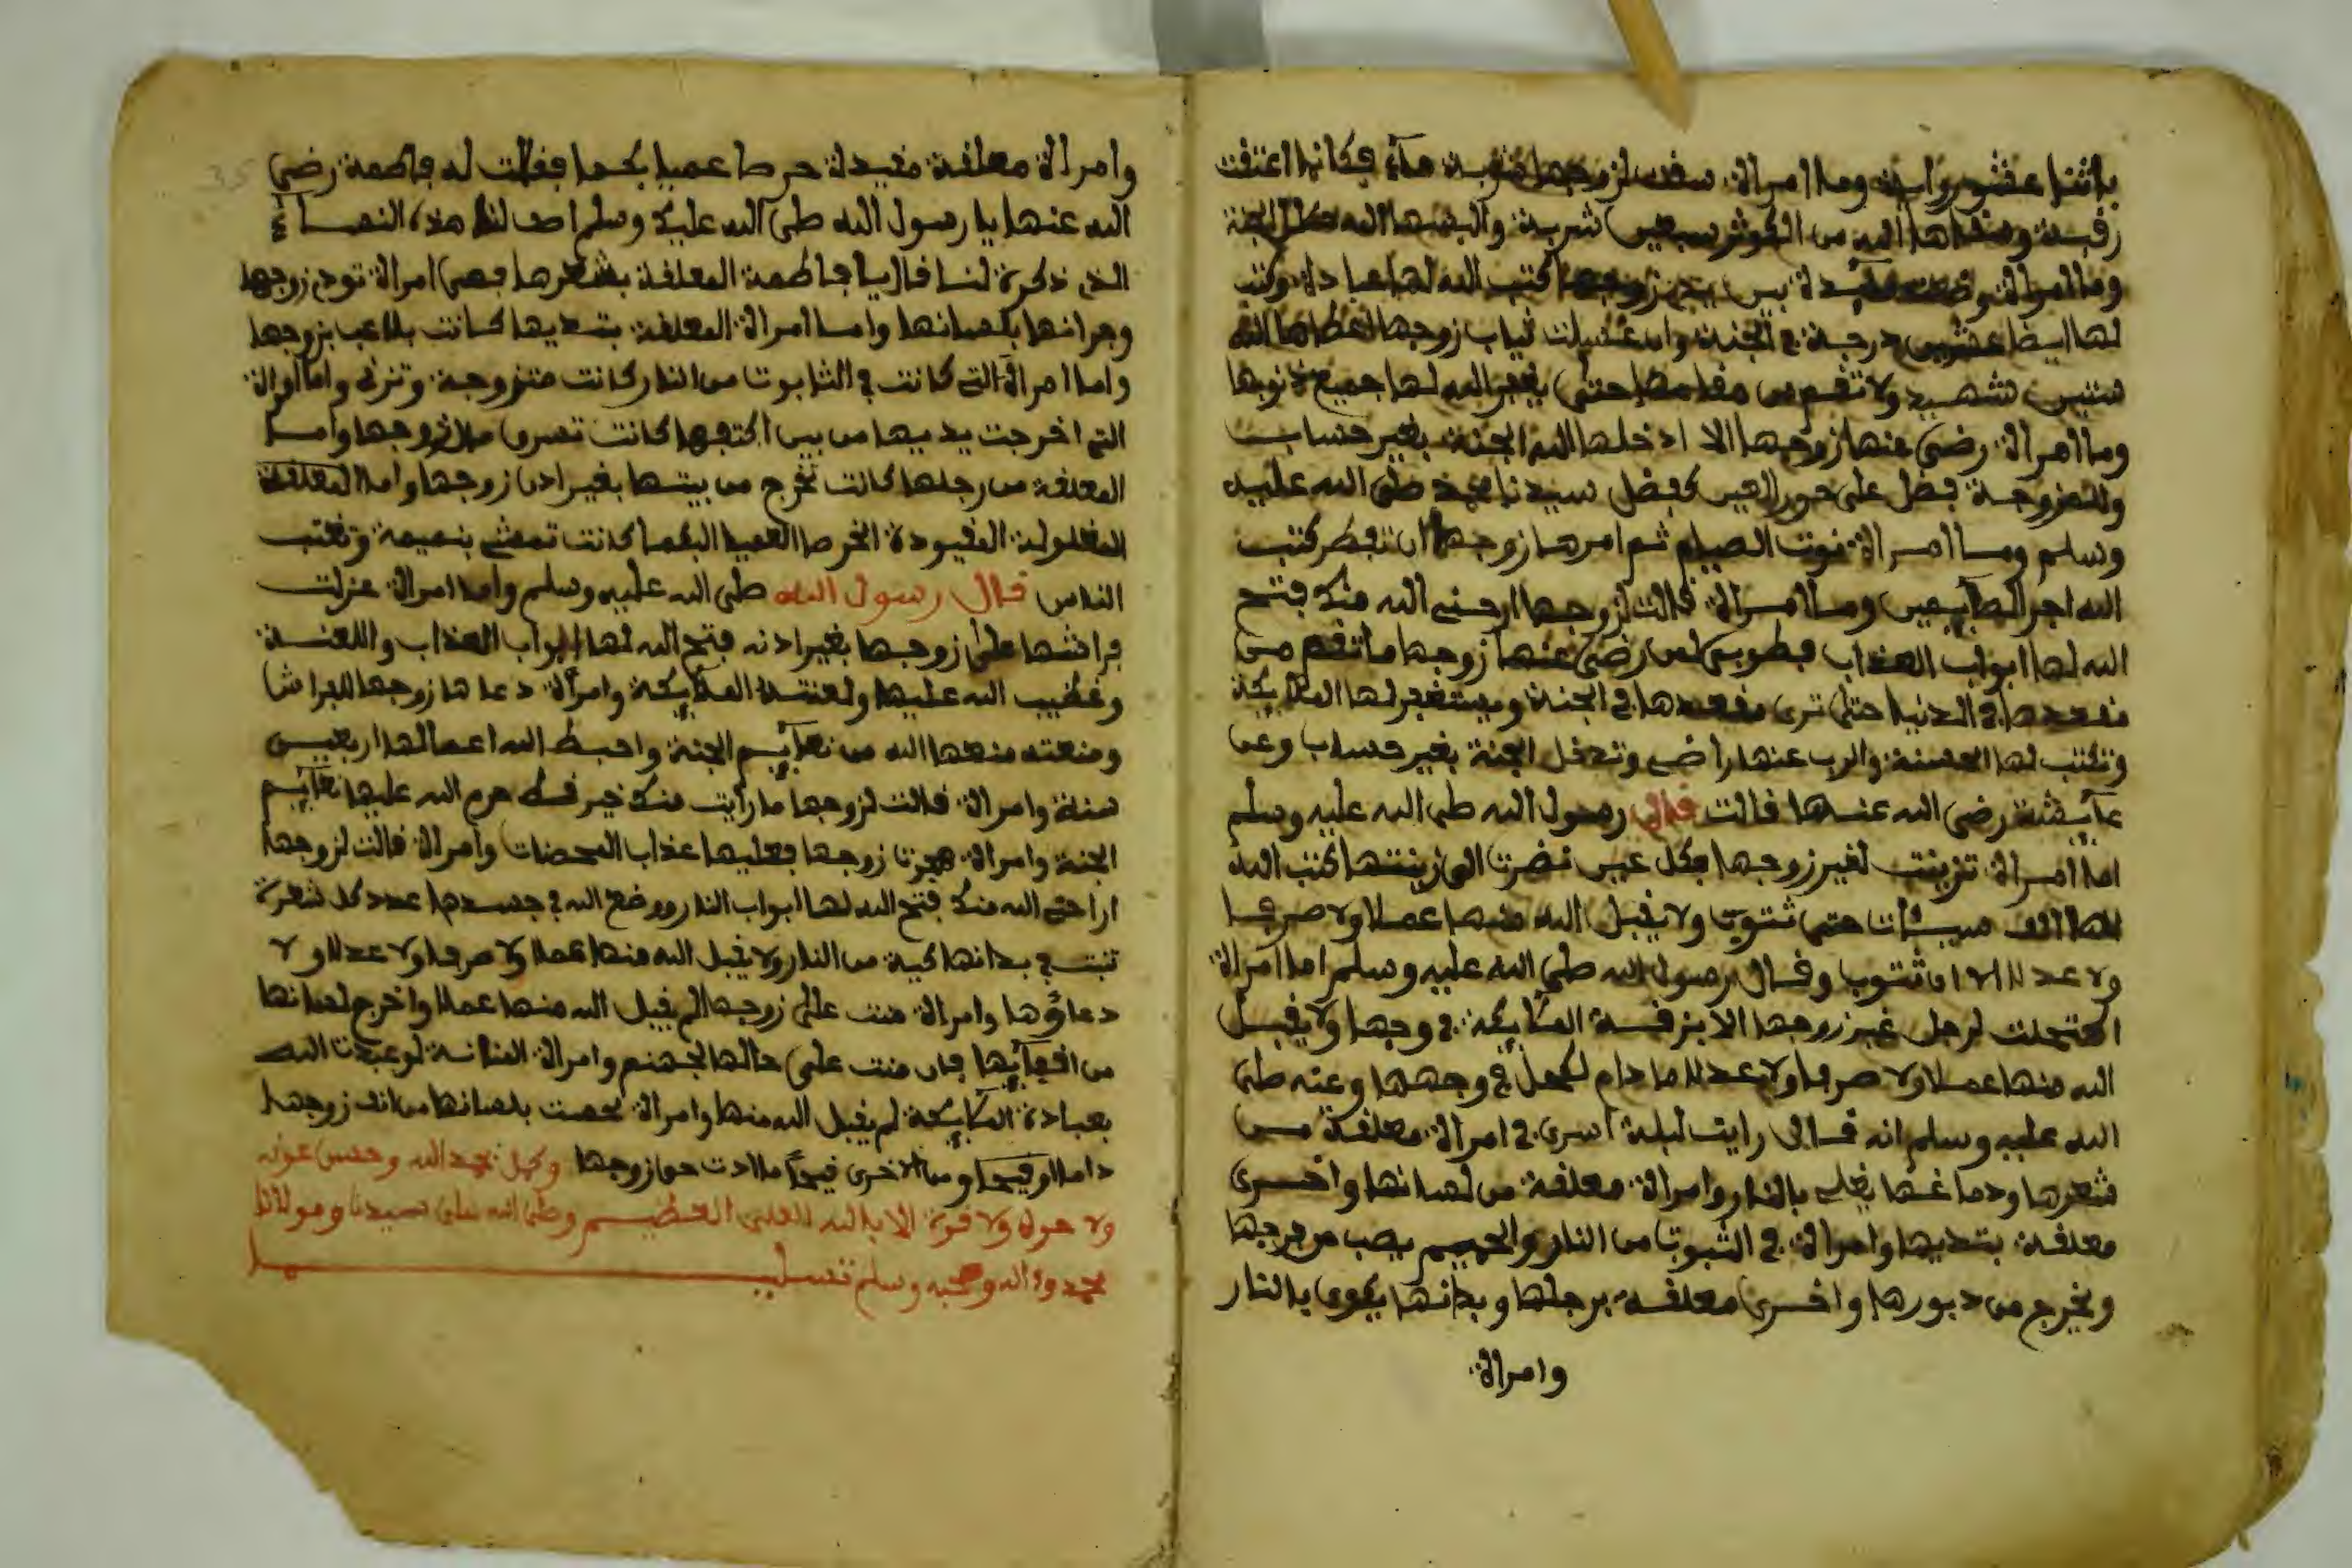 وما امراة سقت لزوجها شربة ماء فكانما اعتقت
رقبة وسقاها الله من الكوثر سبعين شربة والبسها الله حلل الجنة
وما امراة وضعت مائدة بين يدي زوجها كتب الله لها عبادة وكتب
لها ايضا عشرين درجة في الجنة وان غسلت ثياب زوجها اعطاها الله
ستين شهيد ولا تقم من مقامها حتى يغفر الله لها جميع ذنوبها
وما امراة رضى عنها زوجها الا ادخلها الله الجنة بغير حساب
والمزوجة فضل على حور العين كفضل سيدنا محمد صلى الله عليه
وسلم وما امراة نوت الصيام ثم امرها زوجها ان تفطر كتب
الله اجر الصايمين وما امراة قالت لزوجها ارحني الله منك فتح
الله لها ابواب العذاب فطوبى لمن رضى عنها زوجها ما تقم من
مقعدها في الدنيا حتى ترى مقعدها في الجنة ويستغفر لها الملايكة
وتكتب لها الحسنة والرب عنها راضي وتدخل الجنة بغير حساب وعن
عايشة رضى الله عنها قالت قال رسول الله صلى الله عليه وسلم
اما امراة تزينت لغير زوجها فكل عين نضرت الى زينتها كتب الله
لها الف سيئات حتى تتوب ولا يقبل الله منها عملا ولا صرفا
ولا عدلا الا ان تتوب وقال رسول الله صلى الله عليه وسلم اما امراة
اكتحلت لرجل غير زوجها الا بزقة الملايكة في وجها ولا يقبل
الله منها عملا ولا صرفا ولا عدلا ما دام لكحل في وجهها وعنه صلى
الله عليه وسلم انه قال رايت ليلة اسرى في امراة معلقة من
شعرها ودماغها يغلي بالنار وامراة معلقة من لسانها واخرى
معلقة بتديها وامراة في التبوت من النار والحميم يصب من فرجها
ويخرج من دبورها واخرى معلقة برجلها وبدانها يكوى بالنار
وامراة
وامراة معلقة مقيدة خرصا عميا بكما فقالت له فاطمة رضى
الله عنها يا رسول الله صلى الله عليك وسلم اصف لنا هذه النساء
الذي ذكرة لنا قال يا فاطمة المعلقة بشعرها فهى امراة توذي زوجها
وجرانها بلسانها واما امراة المعلقة بتديها كانت بلاعب بزوجها
واما امراة التي كانت في التابوت من النار كانت متزوجة وتزنى واما امراة
التي اخرجت يديها من بين اكتفها كانت تسرق مال زوجها واما
المعلقة من رجلها كانت تخرج من بيتها بغير اذن زوجها واما المعلقة
المغلولة المقيودة الخرصا العميا البكما كانت تمشي بنميمة وتغتب
الناس قال رسول الله صلى الله عليه وسلم واما امراة عزلت
فراشها على زوجها بغير اذنه فتح الله لها ابواب العذاب واللعنة
وغضب الله عليها ولعنتها الملايكة وامراة دعاها زوجها للفراش
ومنعته منعها الله من نعايم الجنة واحبط الله اعمالها اربعين
سنة وامراة قالت لزوجها ما رأيت منك خير قط حرم الله عليها نعايم
الجنة وامراة هجرت زوجها فعليها عذاب المحضات وامراة قالت لزوجها
اراحني الله منك فتح الله لها ابواب النار ووضع الله في جسدها عدد كل شعرة
تنبت في بدانها حية من النار ولا يقبل الله منها عملا ولا صرفا ولا عدلا ولا
دعاؤها وامراة منت على زوجها لم يقبل الله منها عملا واخرج لسانها
من افعايها فان منت على حالها لجهنم وامراة المنانة لو عبدت الله
بعبادة الملايكة لم يقبل الله منها وامراة بلسانها زوجها
وكمل بحمد الله وحسن عونه
ولا حول ولا قوة الا بالله العلي العظيم وصلى الله على سيدنا ومولانا
محمد وءاله وصحبه وسلم تسليما